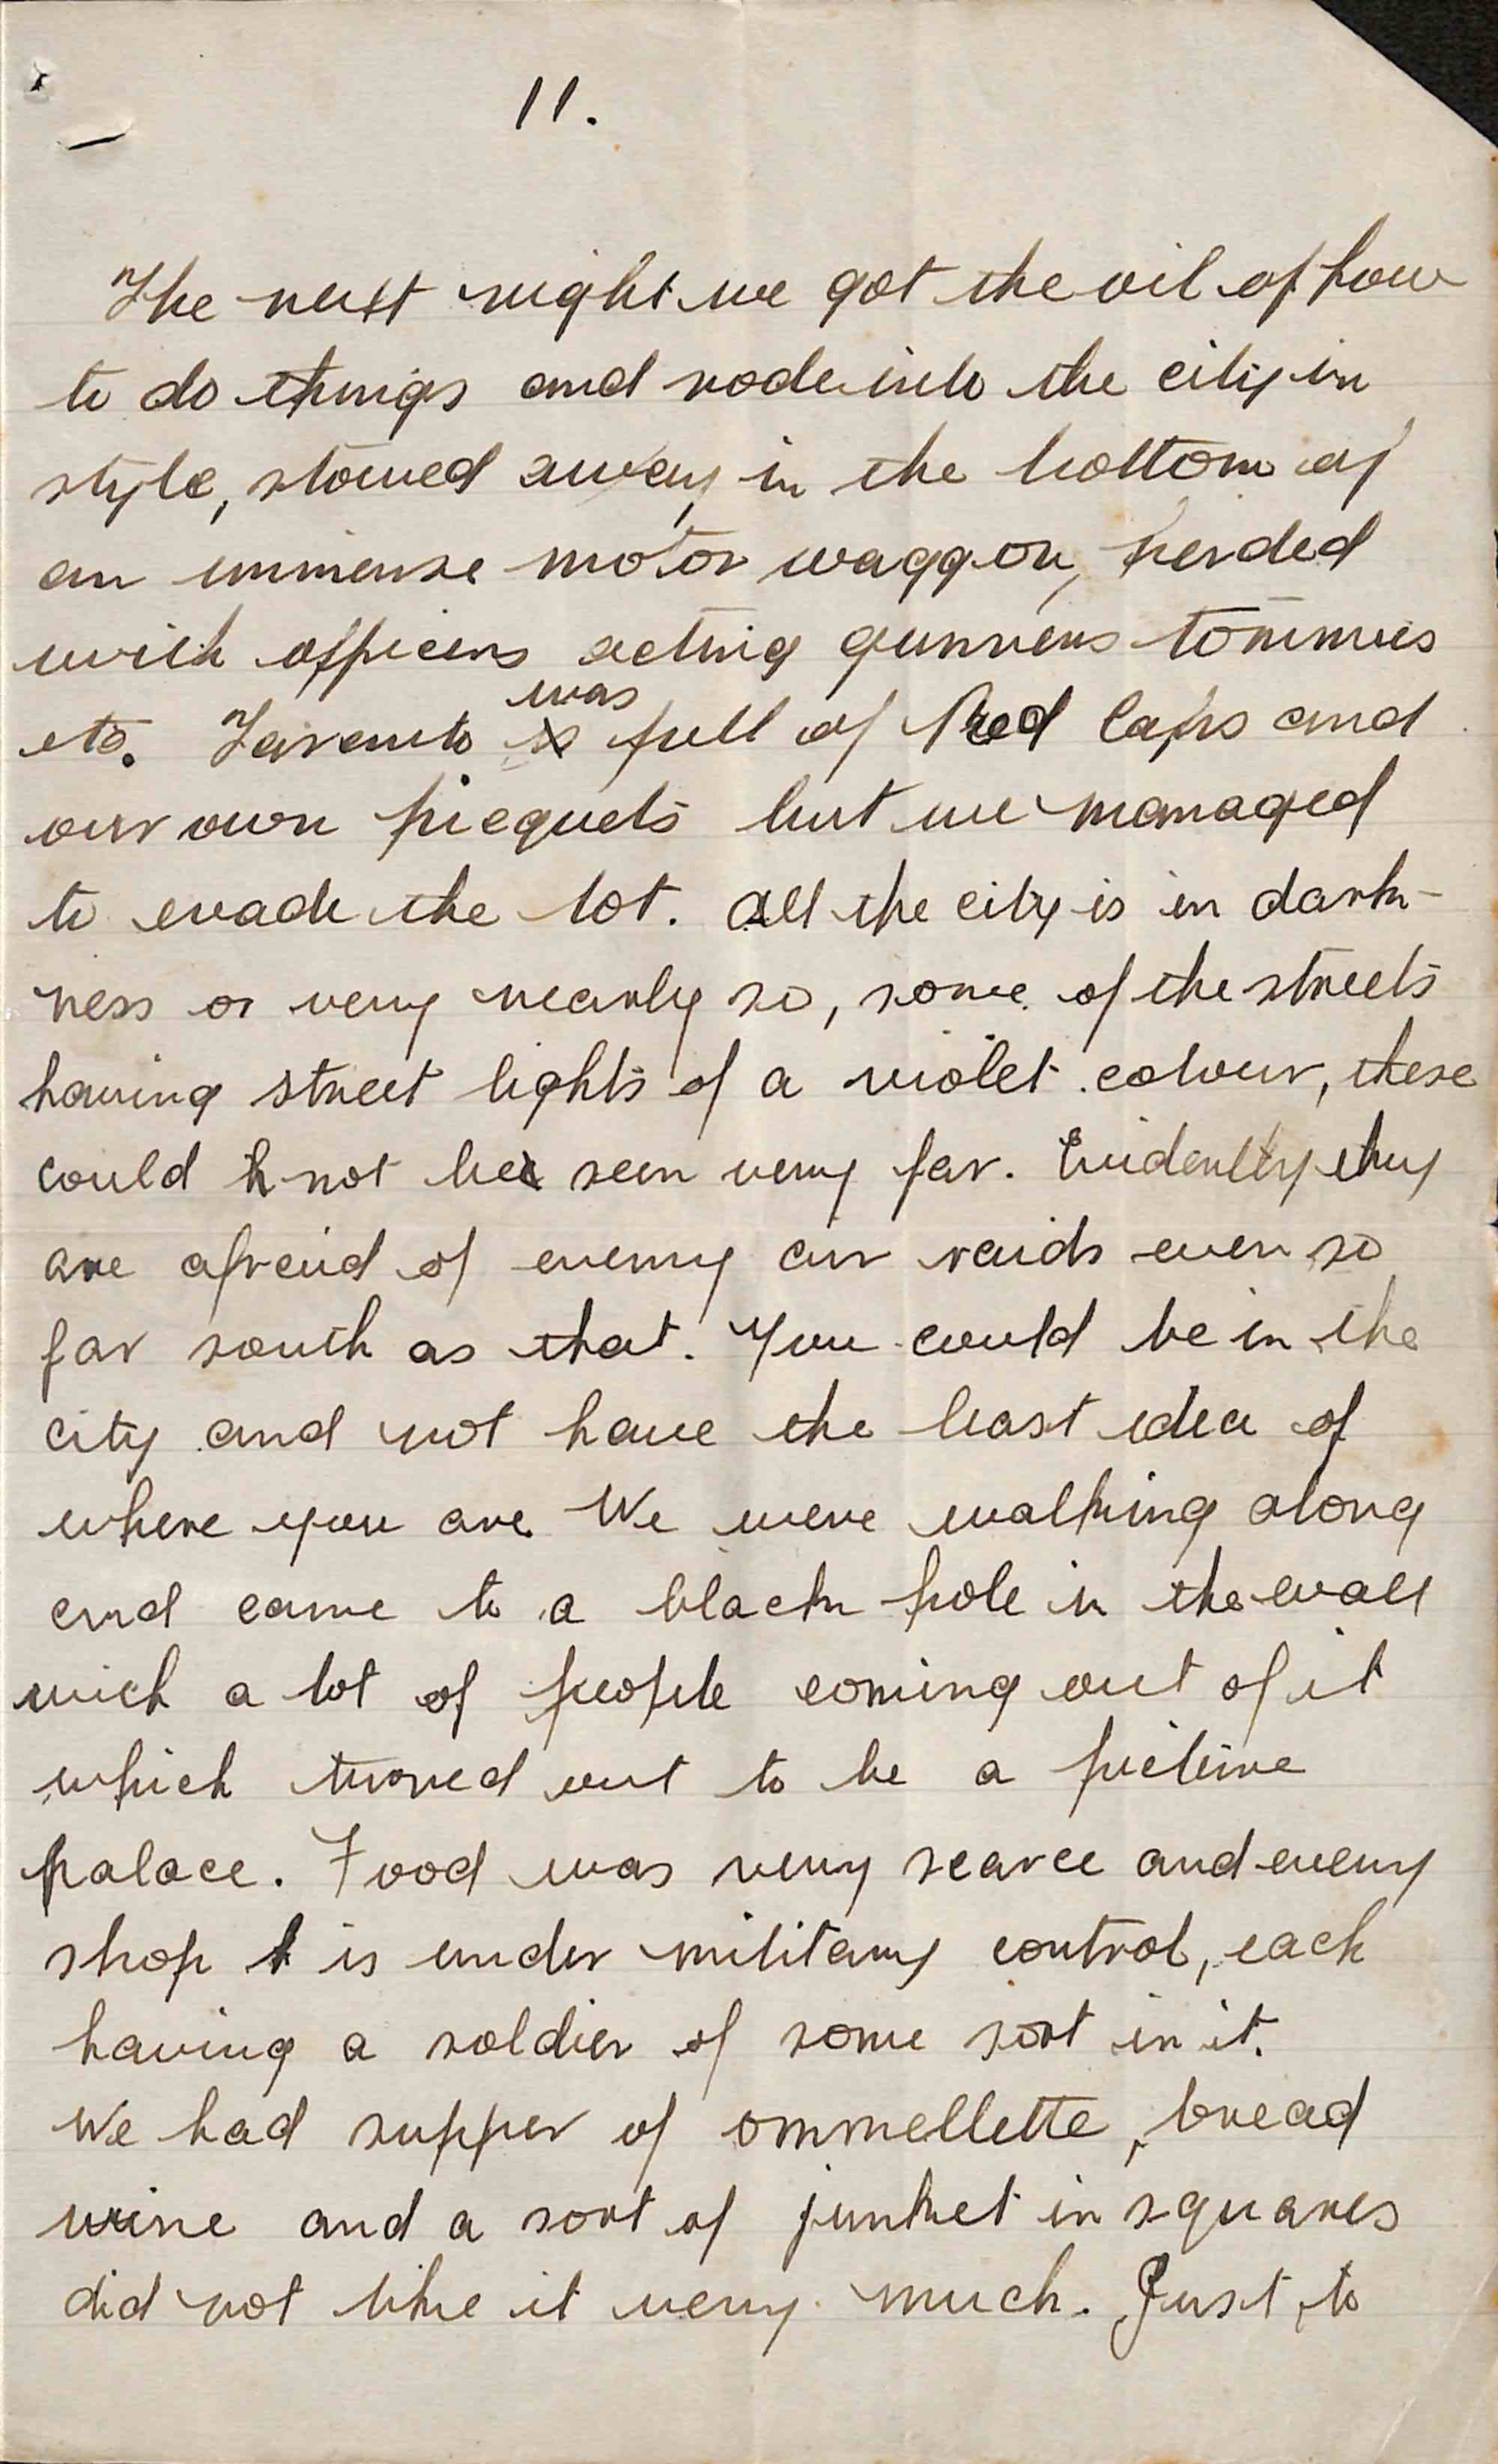 11.
The next night we got the oil of how
to do things and rode into the city in
style, stowed away in the bottom of
an immense motor waggon, herded
with officers acting gunners tommies
etc. Taranto was full of Red Caps and
our own piequets but we managed
to evade the lot. All the city is in dark-
ness or very nearly so, some of the streets
having street lights of a violet colour, these
could not be seen very far. Evidently they
are afraid of enemy air raids even so
far south as that. You could be in the
city and not have the least idea of
where you are. We were walking along
and came to a black hole in the wall
with a lot of people coming out of it
which turned out to be a picture
palace. Food was very scarce and every
shop is under military control, each
having a soldier of some sort in it.
We had supper of ommellette, bread
wine and a sort of junket in squares
did not like it very much. Just to